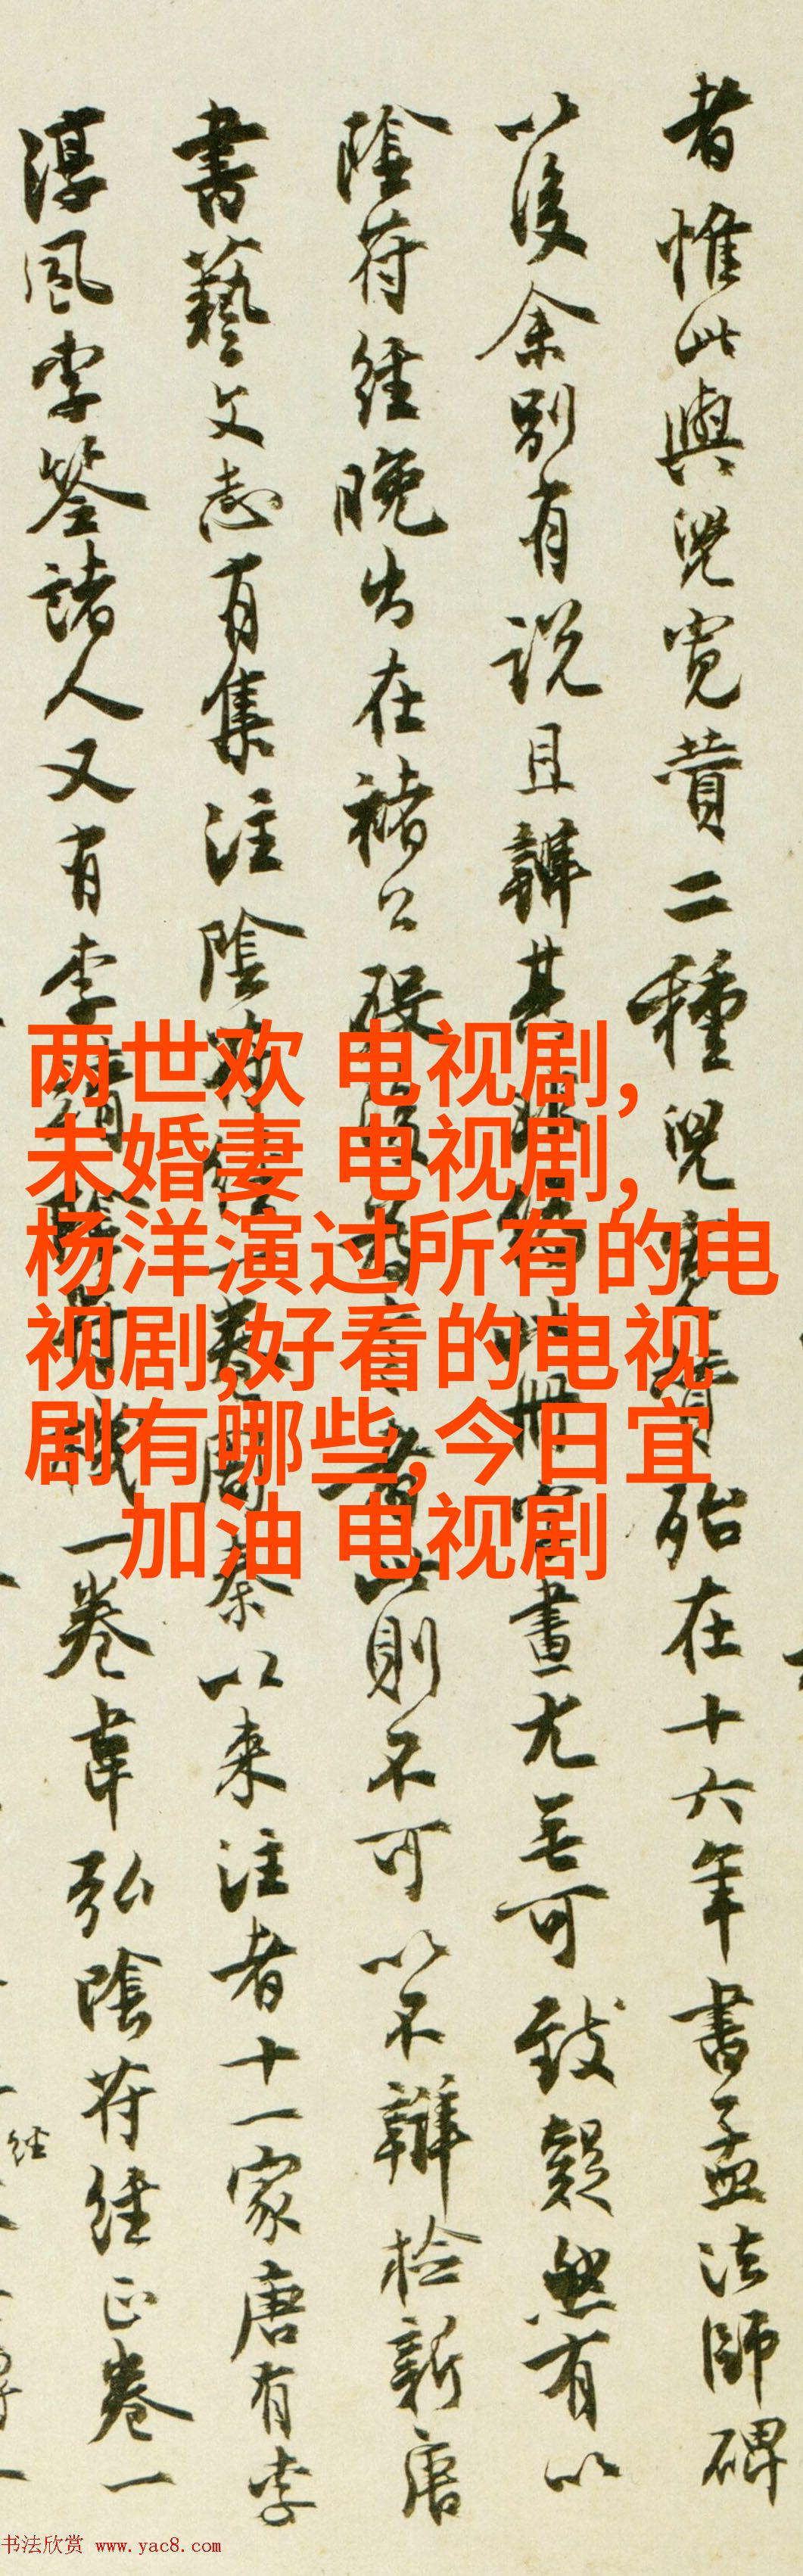 者惟此與兒寬贊二種兒寬贊殆在十六年書孟法師碑
以後余別有說且辯其
此冊字畫尤無可致疑然有以
陰符經晚出在褚公歿
則不可以不辯檢新唐
書藝文志有集注陰符經一卷
秦以來注者十一家唐有李
淳風李筌諸人又有李
一卷韋弘陰符經正卷一
經
两世欢 电视剧,
未婚妻 电视剧,
杨洋演过所有的电
视剧,好看的电视
剧有哪些,今日宜
加油 电视剧
书法欣赏 www.yac8.com